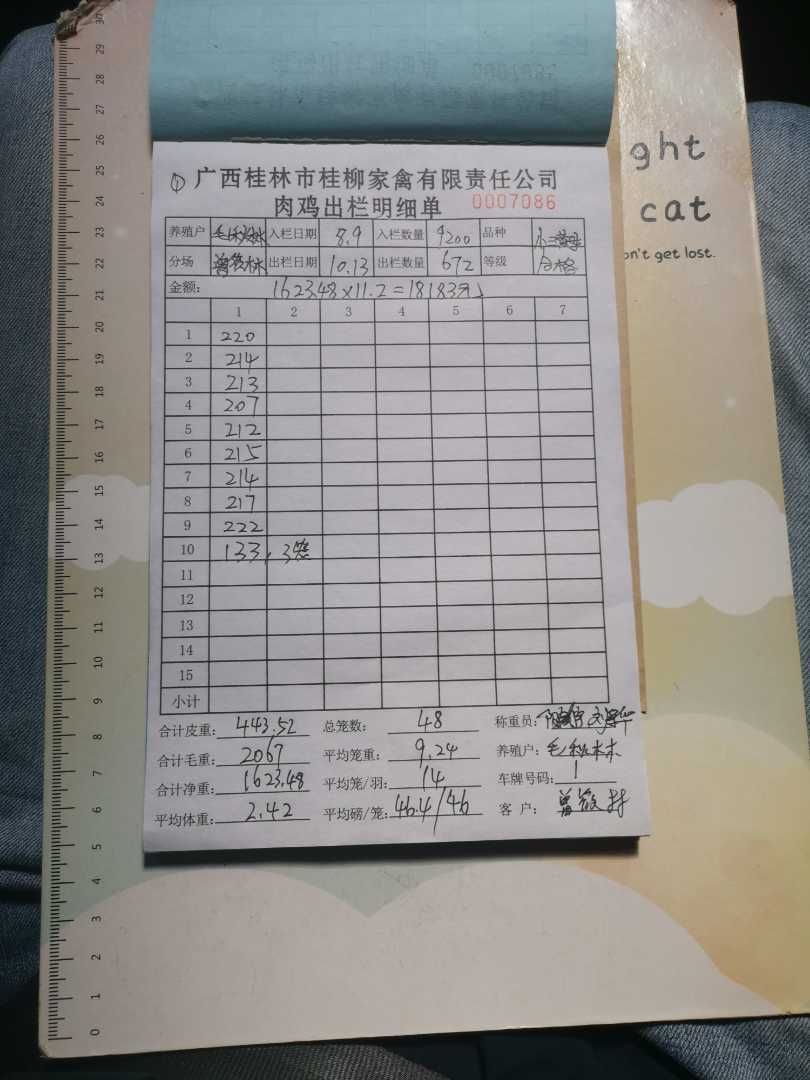 ght
cat
on't get lost.
① 广西桂林市桂柳家禽有限责任公司
肉鸡出栏明细单 0007086
养殖户 入栏日期 8.9 入栏数量 9200 品种
分场 出栏日期 10.13 出栏数量 672 等级 合格
金额： 1623.48×11.2=18183元
1 2 3 4 5 6 7
1 220
2 214
3 213
4 207
5 212
6 215
7 214
8 217
9 222
10 133, 3笼
11
12
13
14
15
小计
合计皮重： 443.52 总笼数： 48 称重员：
合计毛重： 2067 平均笼重： 9.24 养殖户：
合计净重： 1623.48 平均笼/羽： 14 车牌号码： 1
平均体重： 2.42 平均磅/笼： 46.4/46 客户：
30
29
28
27
26
25
24
23
22
21
20
19
18
17
16
15
14
13
12
11
10
9
8
7
6
5
4
3
2
1
0